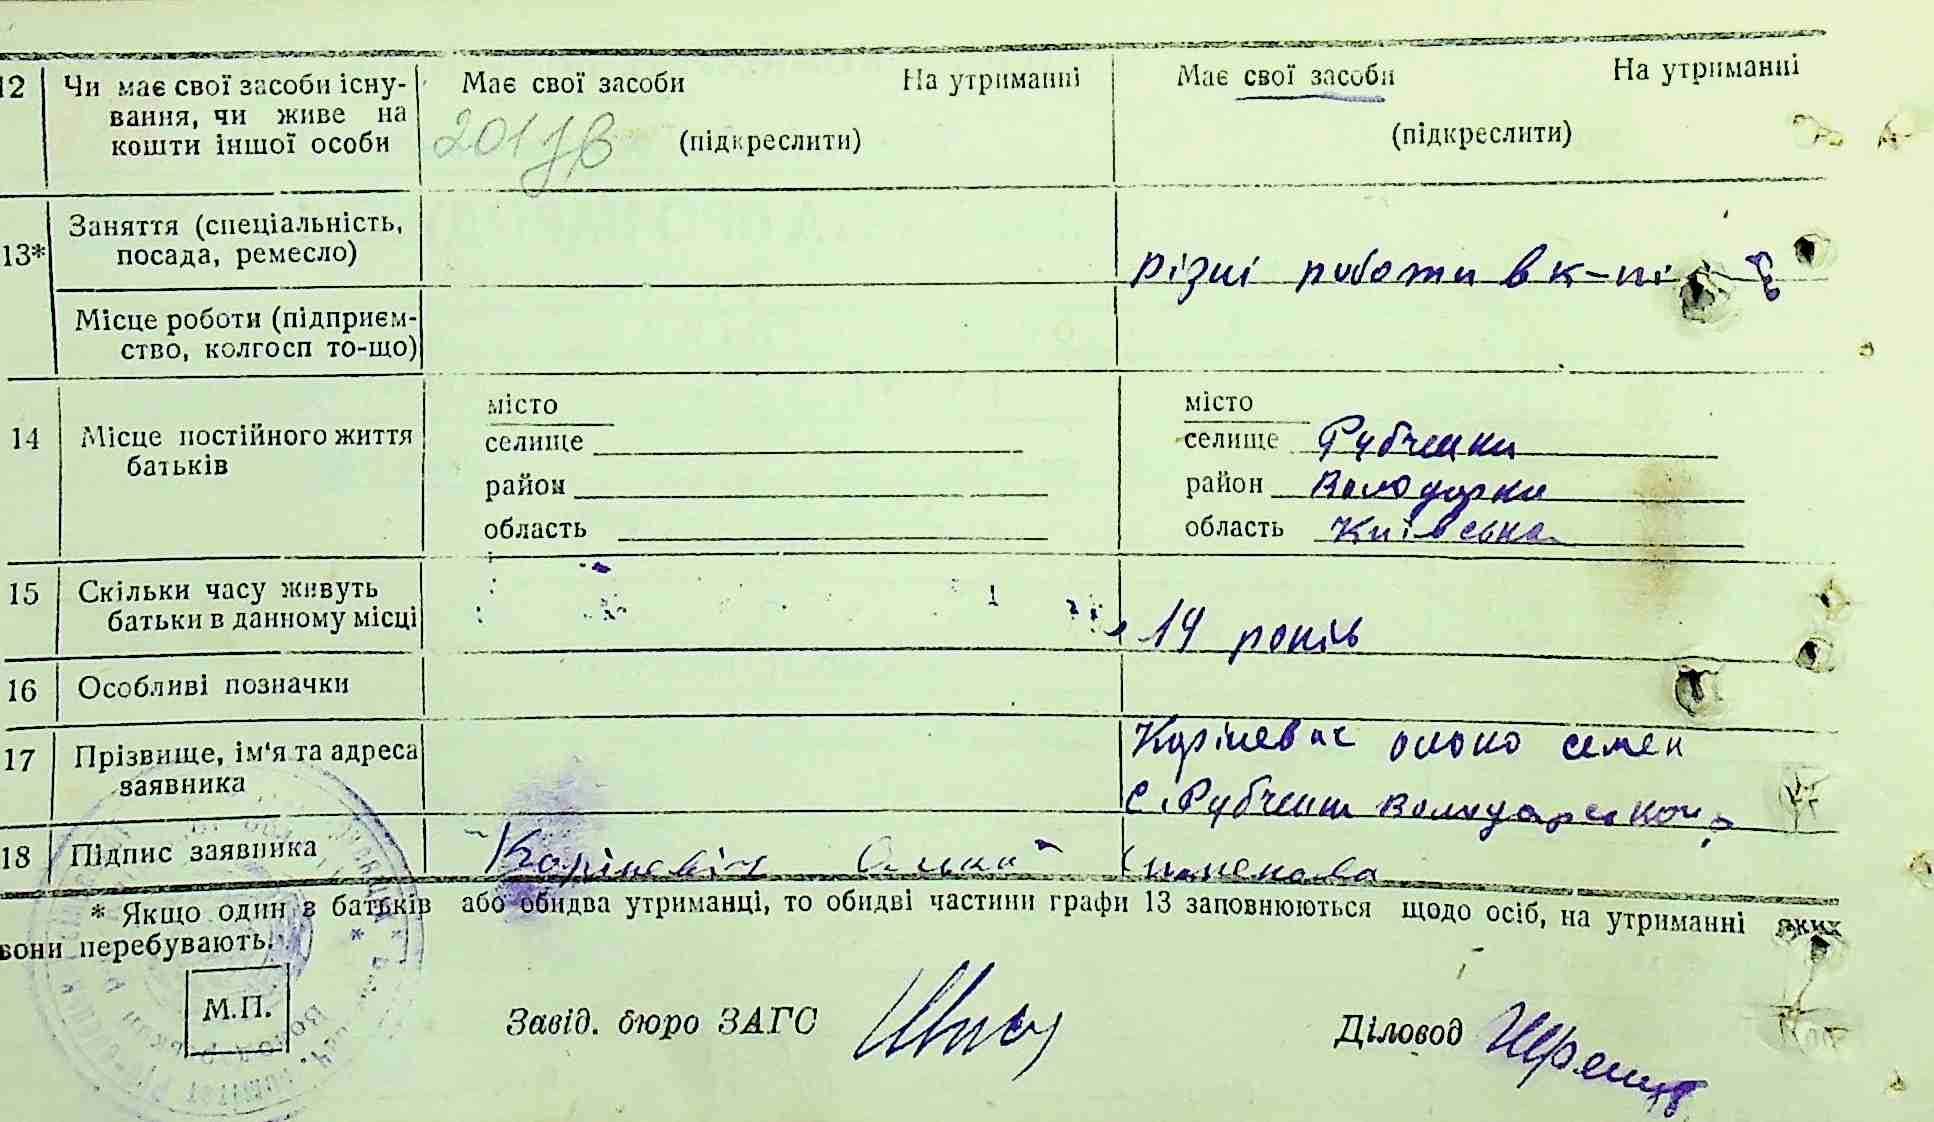 12 Чи має свої засоби існу- Має свої засоби На утриманні Має свої засоби На утриманні
вання, чи живе на
кошти іншої особи (підкреслити) (підкреслити)
Заняття (спеціальність,
13* посада, ремесло) різні роботи в к-пі
Місце роботи (підприєм-
ство, колгосп то-що)
місто місто
14 Місце постійного життя селище селище Рубченки
батьків район район Володарка
область область Київська
15 Скільки часу живуть
батьки в данному місці 14 років
16 Особливі позначки
17 Прізвище, ім'я та адреса Коріневич семен
заявника с. Рубченки
18 Підпис заявника Коріневіч
* Якщо один з батьків або обидва утриманці, то обидві частини графи 13 заповнюються щодо осіб, на утриманні яких
вони перебувають.
М.П. Завід. бюро ЗАГС Діловод